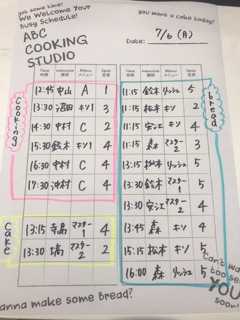 got some time?
We Welcome Your
Busy Schedule!
you want a cake today?
ABC
COOKING
STUDIO
Date: 7/6 (月)
Time 時間 Instructor 講師 Menu メニュー Seats 席数
Cooking
12:45 中山 A 1
13:30 沼田 キソ1 3
14:30 中村 C 2
15:30 鈴木 キソ1 4
16:30 中村 C 4
17:30 沖村 C 4
Cake
13:15 寺島 マスター1 4
13:30 マスター2 2
Time 時間 Instructor 講師 Menu メニュー Seats 席数
bread
11:15 鈴木 リッシュ 5
11:15 松本 キソ 2
11:15 安江 キソ 4
11:15 森 マスター2 5
13:15 松本 リッシュ 5
13:30 鈴木 マスター1 5
13:30 安江 マスター2
13:45 森 キソ 4
15:15 松本 キソ 5
16:00 森 リッシュ 5
wanna make some Bread?
Can't wa
too see
YOU
soon!